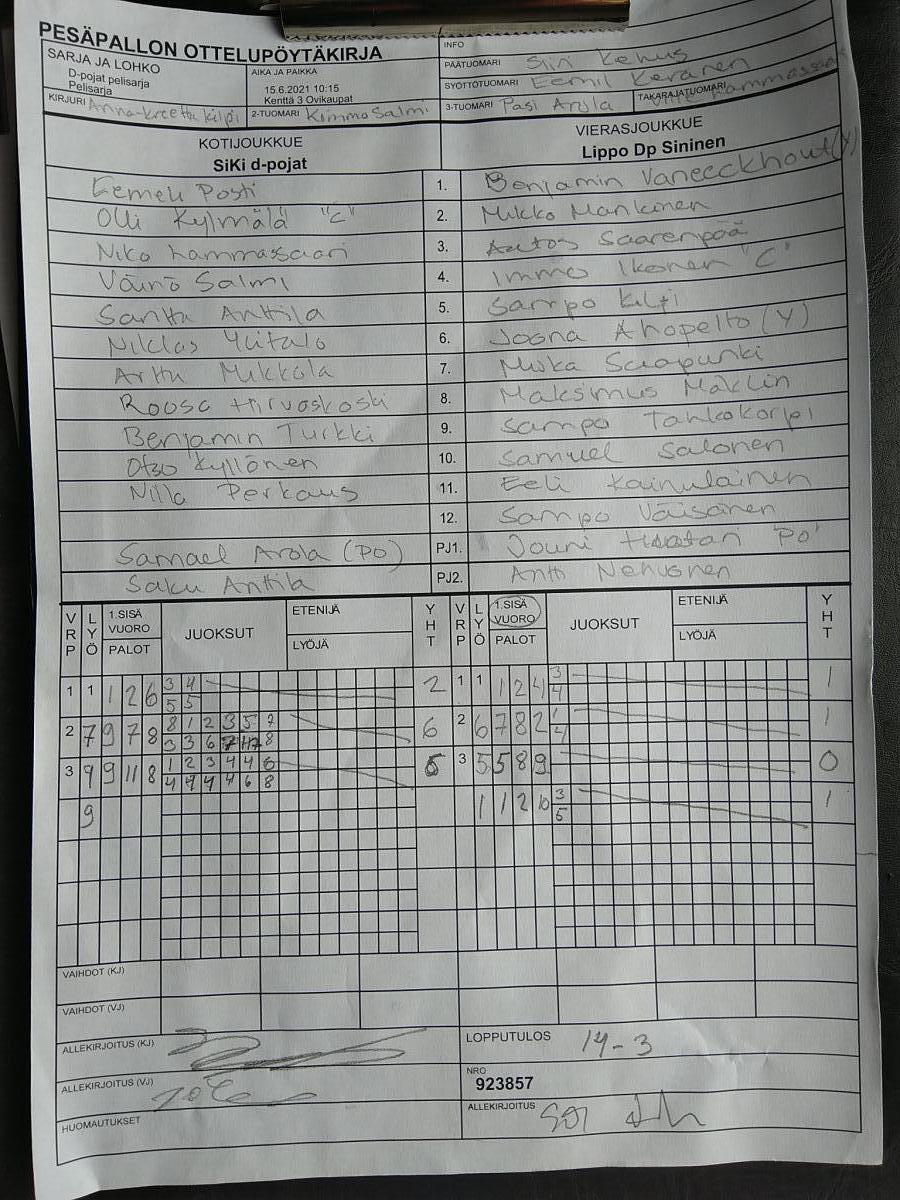 PESÄPALLON OTTELUPÖYTÄKIRJA
SARJA JA LOHKO
D-pojat pelisarja
Pelisarja
AIKA JA PAIKKA
15.6.2021 10:15
Kenttä 3 Ovikaupat
INFO
PÄÄTUOMARI Siiri Kehus
SYÖTTÖTUOMARI Eemil Keränen
KIRJURI Anna-kreetta kilpi
2-TUOMARI Kimmo Salmi
3-TUOMARI Pasi Arola
TAKARAJATUOMARI
KOTIJOUKKUE
SiKi d-pojat
VIERASJOUKKUE
Lippo Dp Sininen
Eemeli Posti 1. Benjamin Vaneeckhout (Y)
Olli Kylmälä "C" 2. Mikko Mankinen
Niko Lammassaari 3. Aatos Saarenpää
Väinö Salmi 4. Immo Ikonen "C"
Santtu Anttila 5. Sampo Kilpi
Niklas Ylitalo 6. Joona Ahopelto (Y)
Arttu Mikkola 7. Miska Saapunki
Roosa Hirvaskoski 8. Maksimus Mäklin
Benjamin Turkki 9. Sampo Tanhakorpi
Otso Kyllönen 10. Samuel Salonen
Nilla Perkaus 11. Eeli Kainulainen
12. Sampo Väisänen
Samael Arola (PO) PJ1. Jouni "PO"
Saku Anttila PJ2. Antti Nehvonen
VRP LYÖ 1.SISÄ VUORO PALOT JUOKSUT ETENIJÄ LYÖJÄ YHT VRP LYÖ 1.SISÄ VUORO PALOT JUOKSUT ETENIJÄ LYÖJÄ YHT
1 1 1 2 6 3 4 2 1 1 1 2 4 3 1
5 5 4
2 7 9 7 8 8 1 2 3 5 7 6 2 6 7 8 2 1 1
3 3 6 7 8 4
3 9 9 11 8 1 2 3 4 4 6 6 3 5 5 8 9 0
4 4 4 4 6 8
9 1 1 2 10 3 1
6
VAIHDOT (KJ)
VAIHDOT (VJ)
ALLEKIRJOITUS (KJ)
LOPPUTULOS 14-3
ALLEKIRJOITUS (VJ)
NRO
923857
HUOMAUTUKSET
ALLEKIRJOITUS